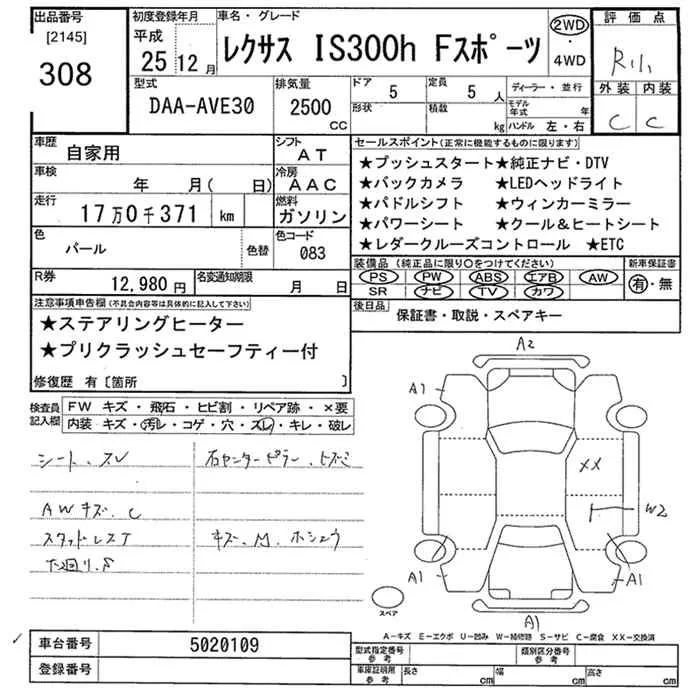 出品番号
[2145]
308
初度登録年月
平成
25 12月
車名・グレード
レクサス IS300h Fスポーツ
2WD
・
4WD
評価点
外装 内装
C C
型式
DAA-AVE30
排気量
2500
CC
ドア 5
形状
定員 5 人
積数 kg
ディーラー・並行
モデル年式 年
ハンドル 左・右
車歴
自家用
シフト
AT
車検
年 月( 日)
冷房
AAC
走行
17万0千371 km
燃料
ガソリン
色
パール
色替
色コード
083
R券
12,980円
名変通知期限
月 日
セールスポイント(正常に機能するものに限ります)
★プッシュスタート★純正ナビ・DTV
★バックカメラ ★LEDヘッドライト
★パドルシフト ★ウィンカーミラー
★パワーシート ★クール&ヒートシート
★レダークルーズコントロール ★ETC
装備品(純正品に限り○をつけてください)
新車保証書
PS PW ABS エアB AW
SR ナビ TV カワ
有・無
後日品
保証書・取説・スペアキー
注意事項申告欄(不具合内容等は具体的に記入して下さい)
★ステアリングヒーター
★プリクラッシュセーフティー付
修復歴 有〔箇所 〕
検査員
記入欄
FW キズ・飛石・ヒビ割・リペア跡・×要
内装 キズ・汚レ・コゲ・穴・スレ・キレ・破レ
シート、スレ
右センターピラー、ヒズミ
AWキズ、C
スタッドレスT
キズ、M、ホシュウ
下廻り、S
A2
A1
XX
W2
A1
A1
A1
スペア
A-キズ E-エクボ U-凹み W-補修跡 S-サビ C-腐食 XX-交換済
車台番号
5020109
登録番号
型式指定番号
参考
類別区分番号
参考
車庫証明用
参考
長さ cm
幅 cm
高さ cm